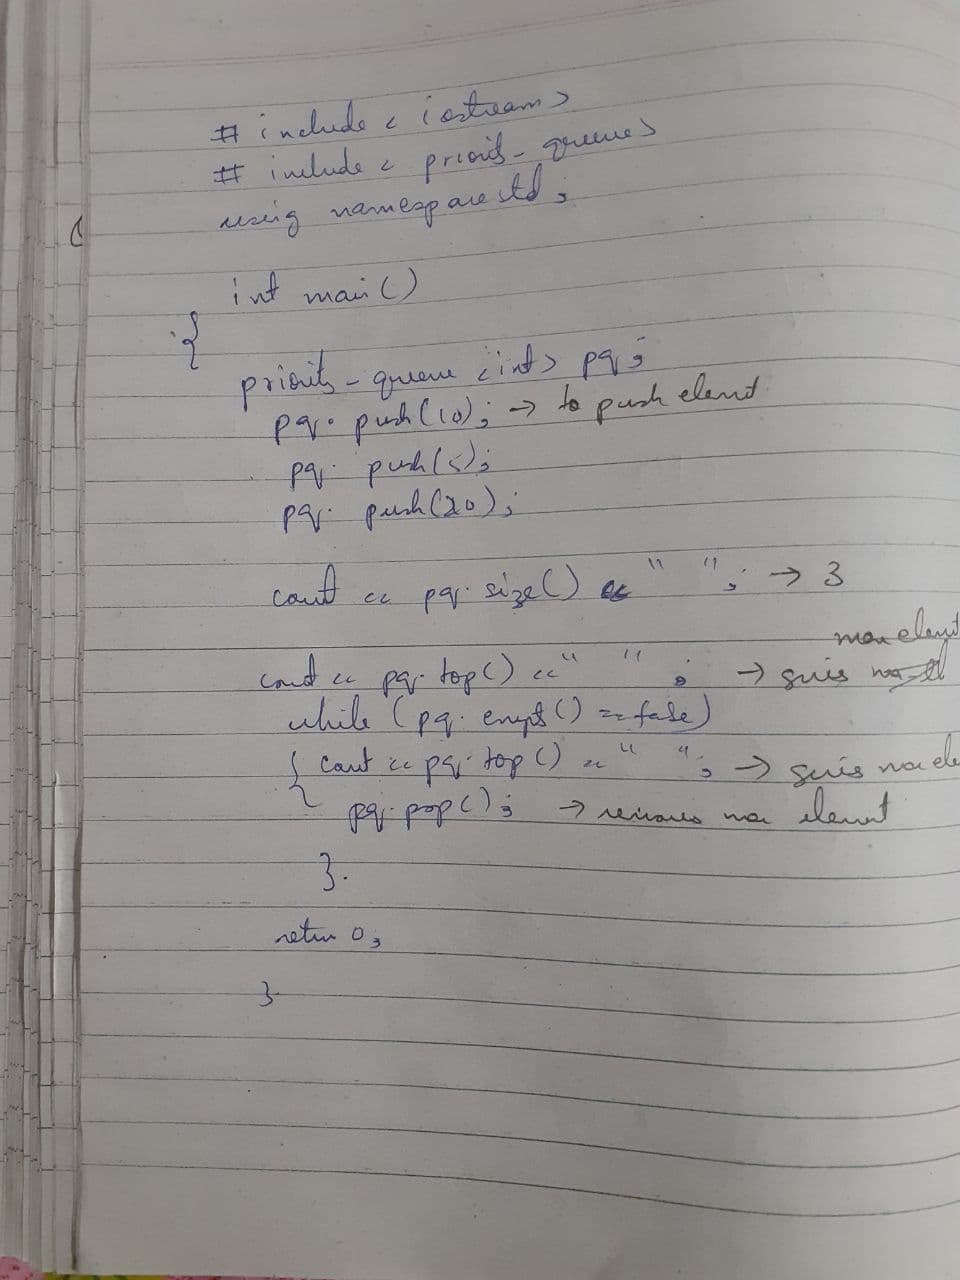 # include < iostream >
# include < priority_queue >
using namespace std;
int main()
{
priority_queue <int> pq;
pq. push(10); → to push elemnt
pq. push(5);
pq. push(20);
cout << pq. size() << " "; → 3
max elemnt
cout << pq. top() << " " ; → gives
while (pq. empty() == false)
{ cout << pq. top() << " "; → gives max ele
pq. pop(); → removes max element
}.
return 0;
}